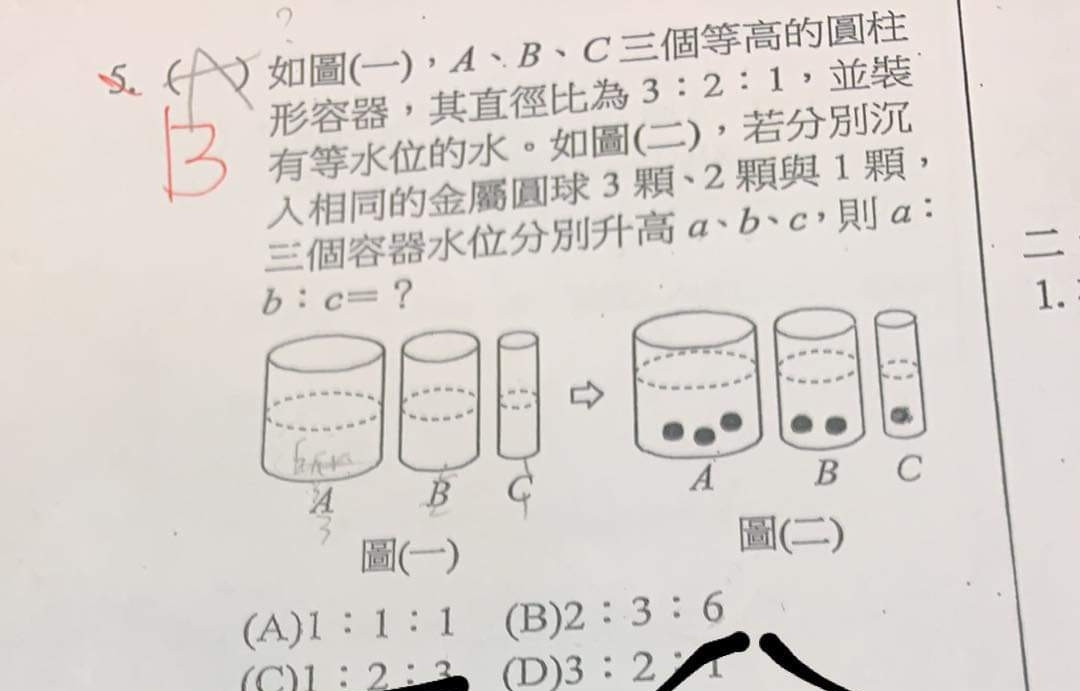 5. (A) 如圖(一)，A、B、C 三個等高的圓柱
B 形容器，其直徑比為 3：2：1，並裝
有等水位的水。如圖(二)，若分別沉
入相同的金屬圓球 3 顆、2 顆與 1 顆，
三個容器水位分別升高 a、b、c，則 a：
b：c＝？
二
1.
A B C
3 2 1
A B C
圖(一) 圖(二)
(A)1：1：1 (B)2：3：6
(C)1：2：3 (D)3：2：1